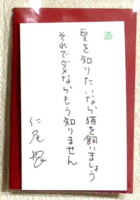 愛を知りたいなら猫を飼いましょう
それでダメならもう知りません
仁尾智